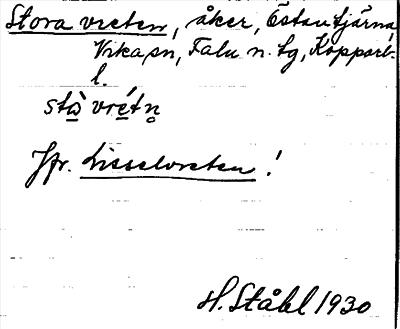 Stora vreten, åker, Östantjärna,
Vika sn, Falu n. tg, Kopparb.
l.
stὼ vrétn̥
Jfr. Lisselvreten!
H. Ståhl 1930